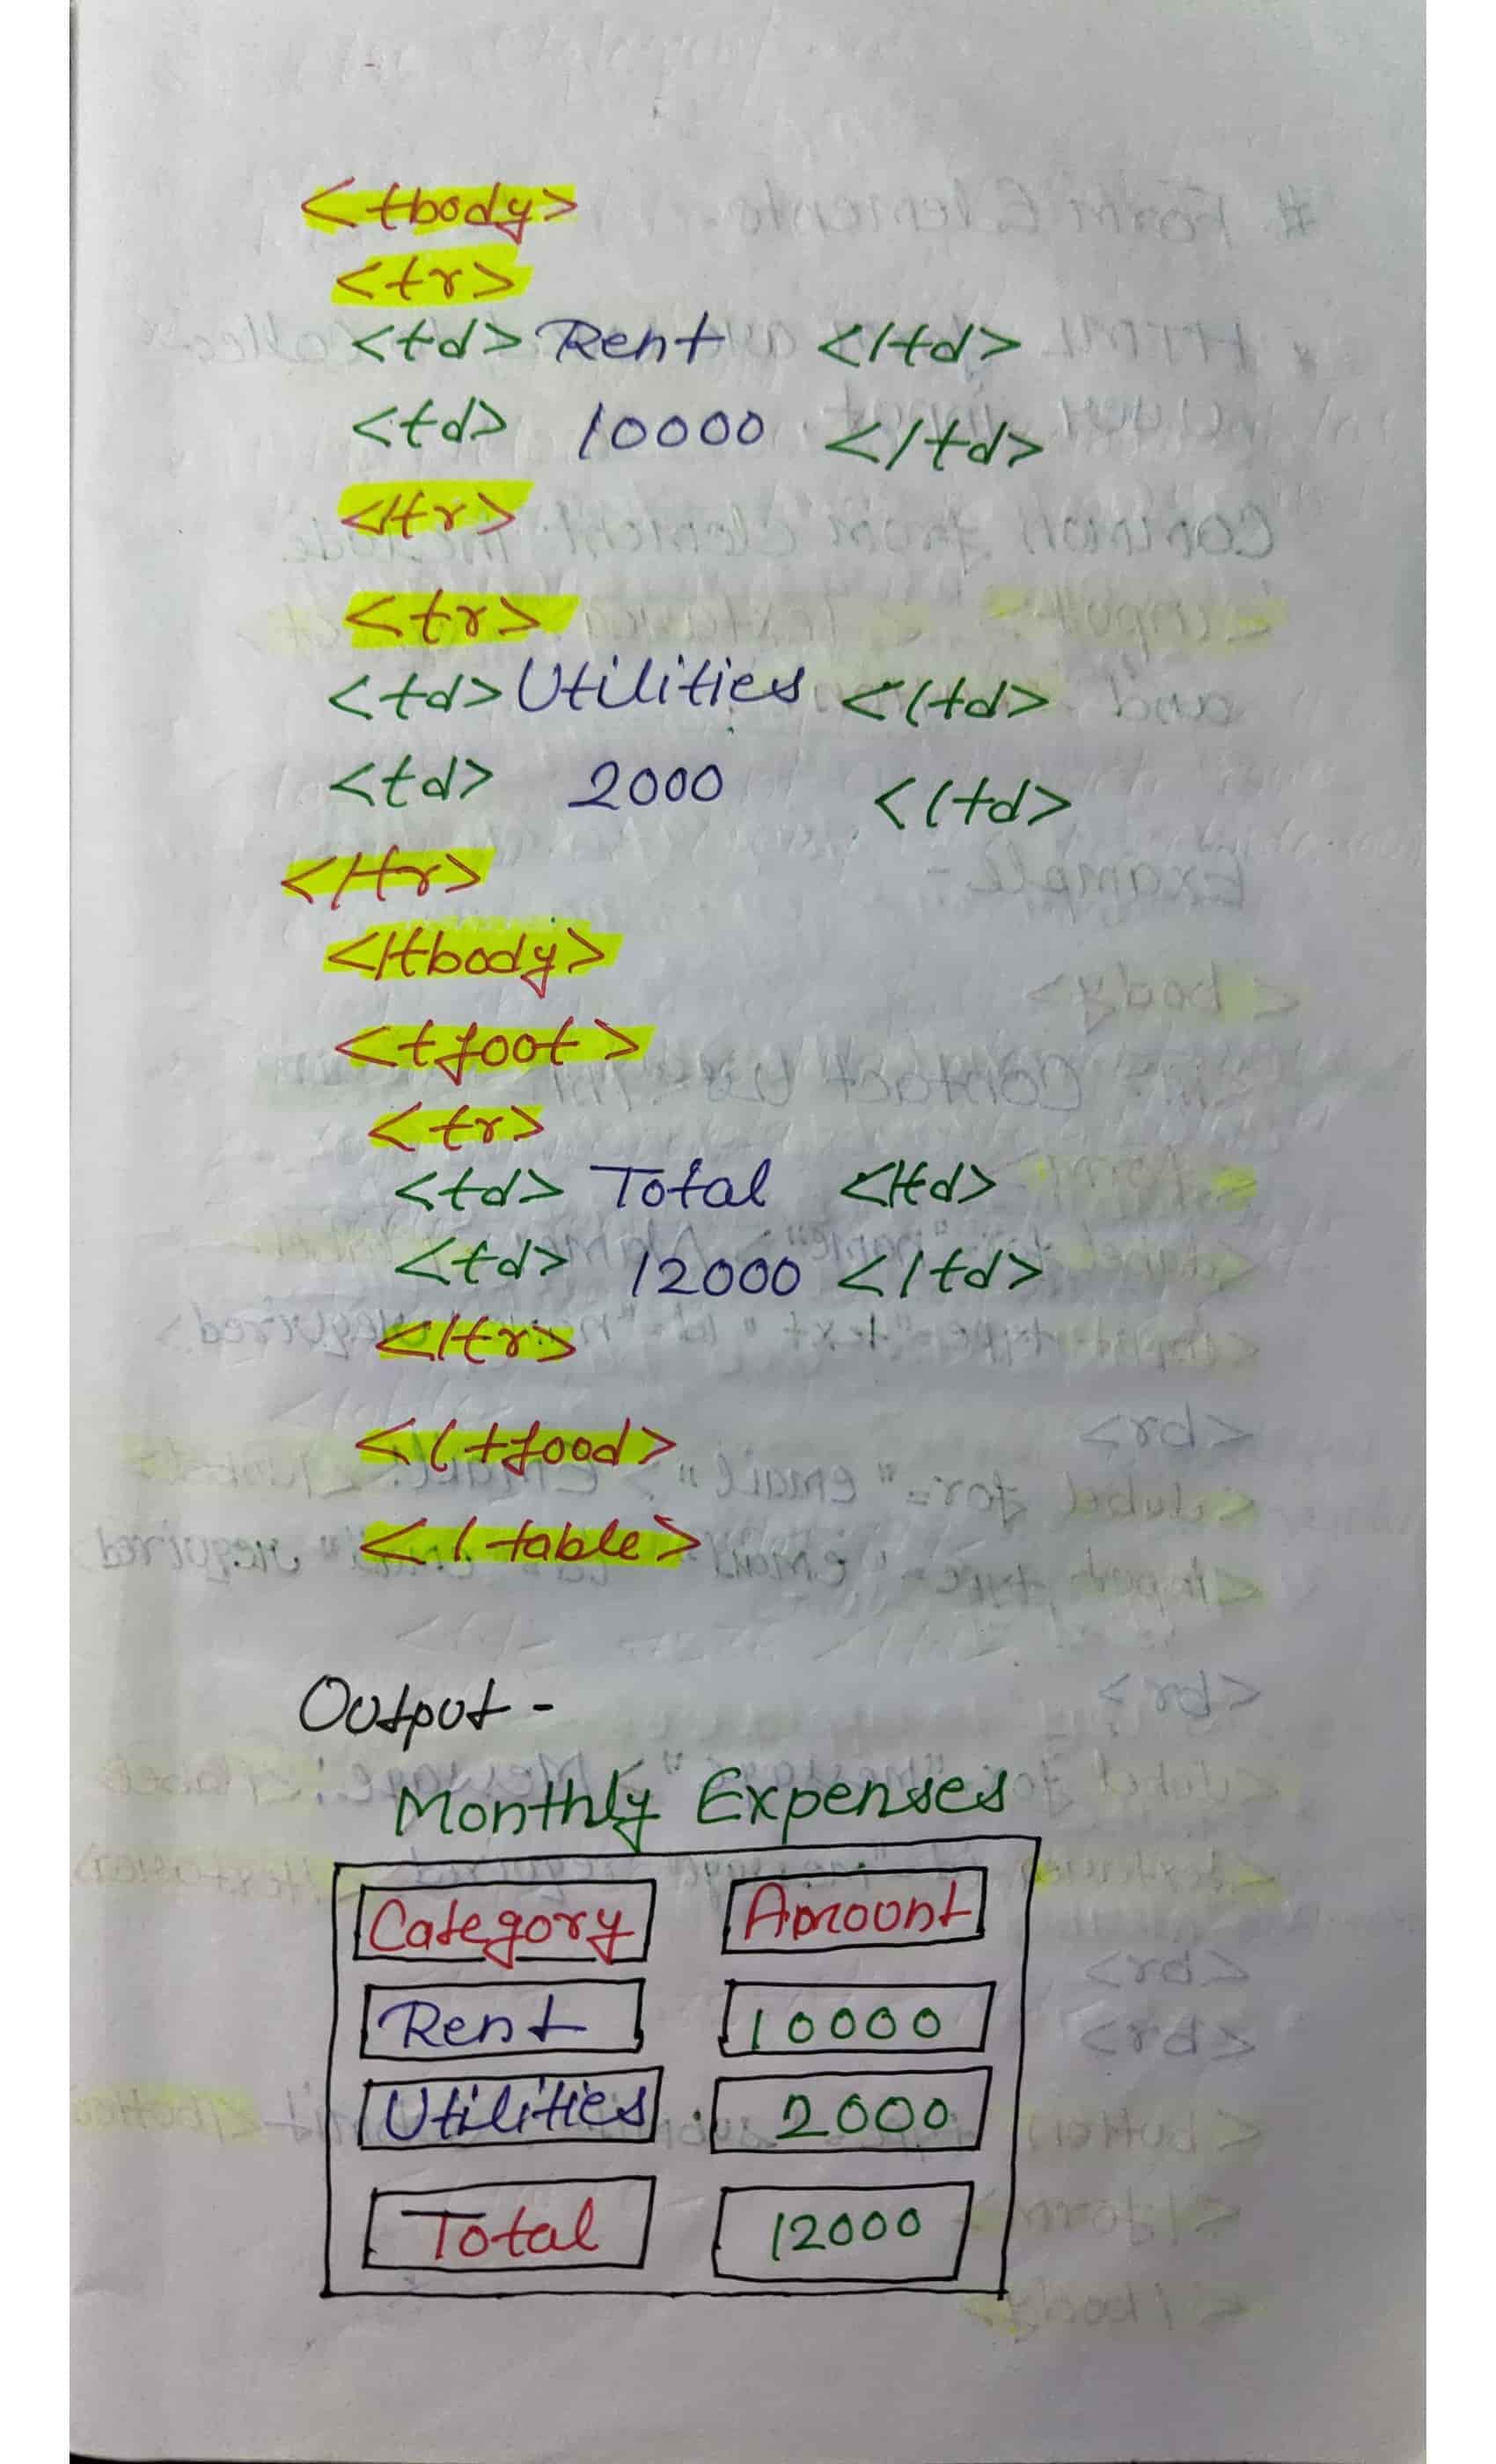 <tbody>
<tr>
<td> Rent </td>
<td> 10000 </td>
</tr>
<tr>
<td> Utilities </td>
<td> 2000 </td>
</tr>
</tbody>
<tfoot>
<tr>
<td> Total </td>
<td> 12000 </td>
</tr>
</tfood>
</table>
Output -
Monthly Expenses
Category Amount
Rent 10000
Utilities 2000
Total 12000